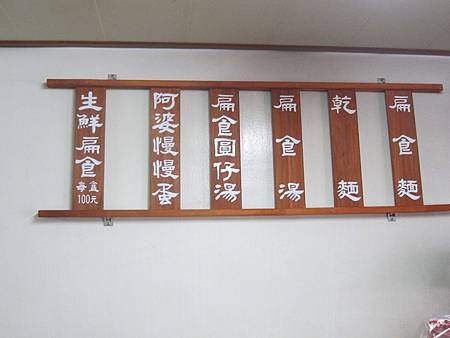 扁食麵
乾麵
扁食湯
扁食圓仔湯
阿婆慢慢蛋
生鮮扁食
每盒
100元